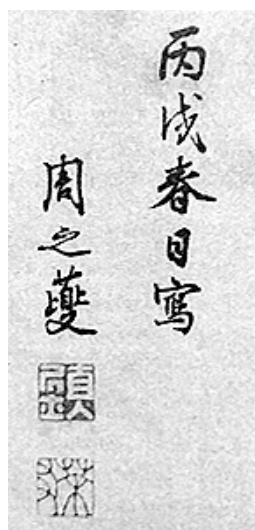 丙戌春日寫
周之夔